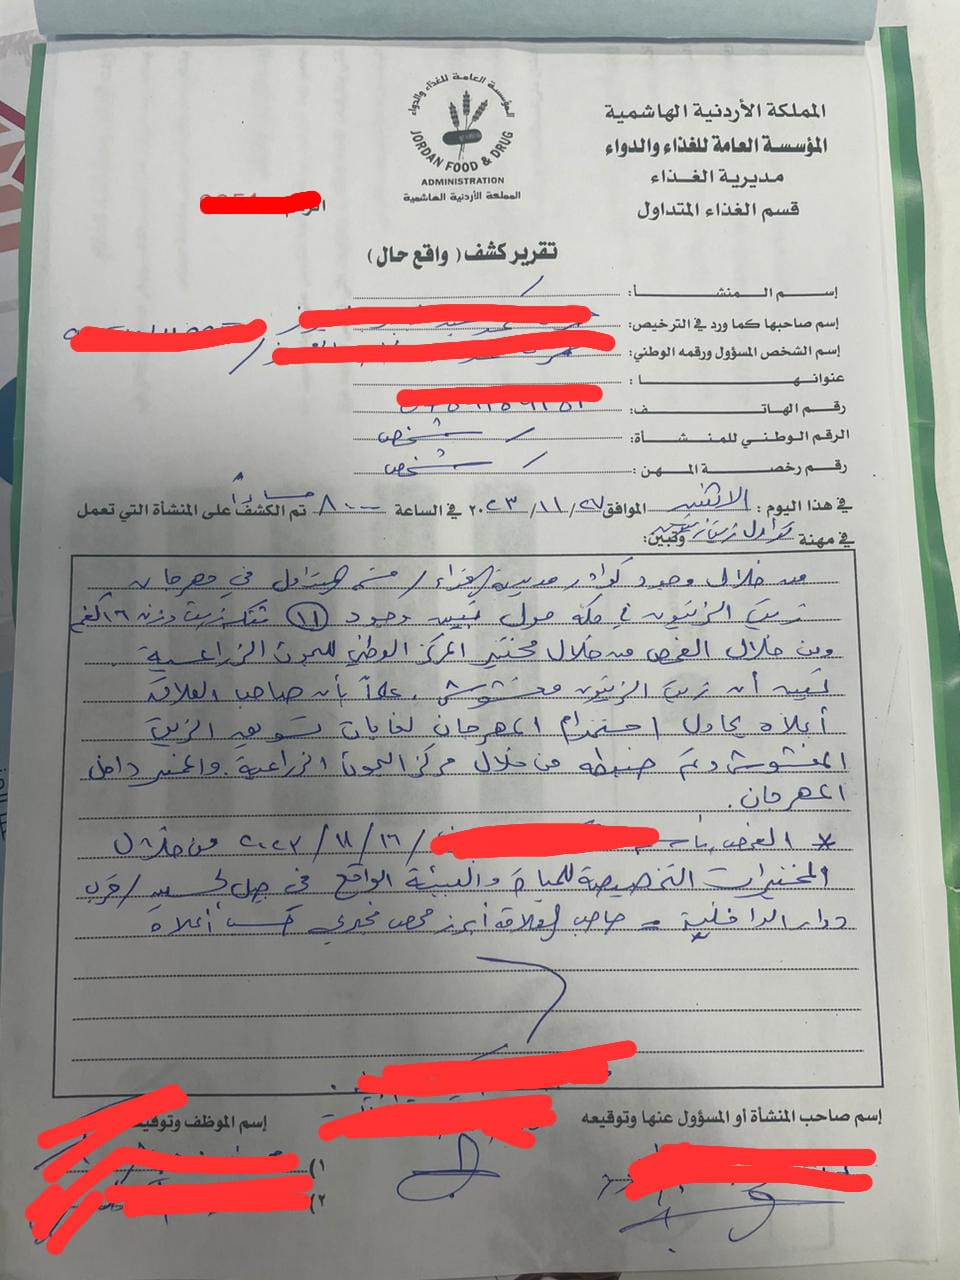 المؤسسة العامة للغذاء والدواء
JORDAN FOOD & DRUG
ADMINISTRATION
المملكة الأردنية الهاشمية
المملكة الأردنية الهاشمية
المؤسسة العامة للغذاء والدواء
مديرية الغذاء
قسم الغذاء المتداول
تقرير كشف (واقع حال)
إسم المنشأ:
إسم صاحبها كما ورد في الترخيص:
إسم الشخص المسؤول ورقمه الوطني:
عنوانها:
رقم الهاتف:
الرقم الوطني للمنشأة: / شخص
رقم رخصة المهن: / شخص
في هذا اليوم: الاثنين الموافق ٢٧/ ١١/ ٢٠٢٣ في الساعة ٨٠٠ مساءاً تم الكشف على المنشأة التي تعمل
في مهنة تداول زيت وتبين:
من خلال وجود كوادر مديرية الغذاء / قسم المتداول في مهرجان
زيت الزيتون في مكة مول تبين وجود (١١) تنكة زيت وزن ١٦ كغم
ومن خلال الفحص من خلال مختبر المركز الوطني للبحوث الزراعية
تبين أن زيت الزيتون مغشوش، علماً بأن صاحب العلاقة
أعلاه يحاول استخدام المهرجان لغايات تسويق الزيت
المغشوش وتم ضبطه من خلال مركز البحوث الزراعية والمختبر داخل
المهرجان.
* الفحص باسم / ١٦ / ١١ / ٢٠٢٣ من خلال
المختبرات للمياه والبيئة الواقع في جبل الحسين / قرب
دوار الداخلية = صاحب العلاقة أبرز فحص مخبري حسب أعلاه
إسم صاحب المنشأة أو المسؤول عنها وتوقيعه
إسم الموظف وتوقيعه
١)
٢)